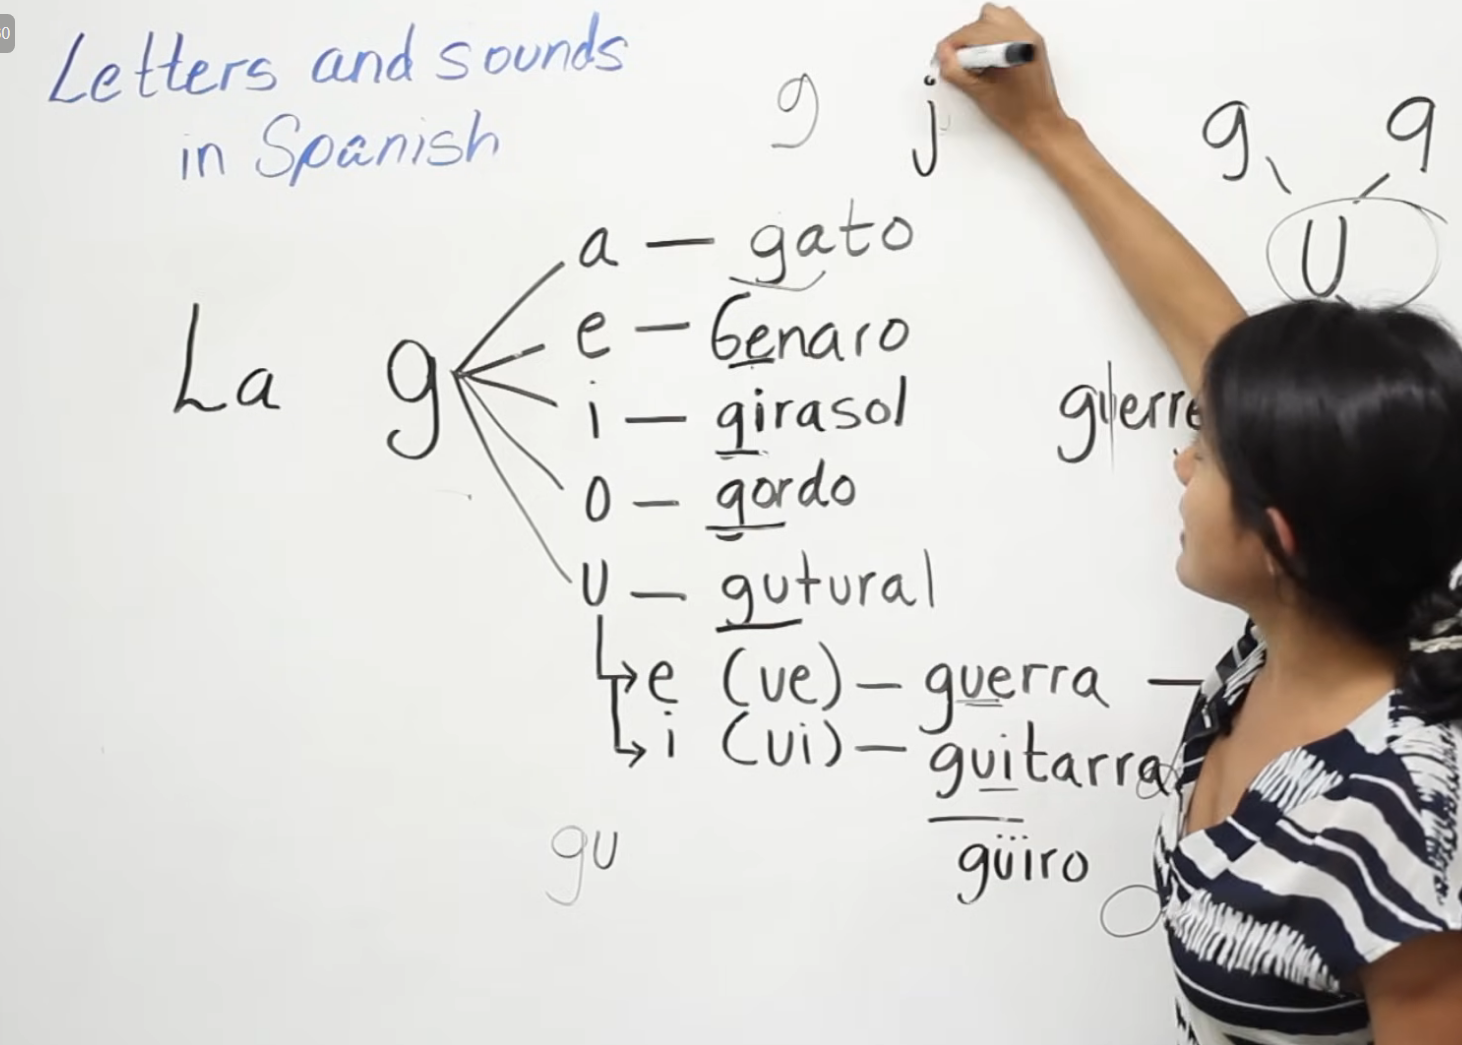 Letters and sounds
in Spanish
g j
g q
U
La g
a — gato
e — Genaro
i — girasol
o — gordo
U — gutural
e (ue) — guerra —
i (ui) — guitarra
güiro
gu